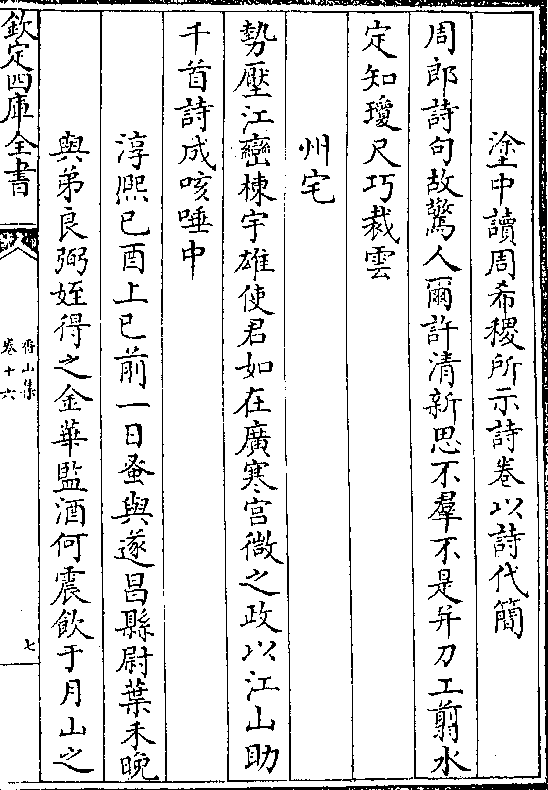 塗中讀周希稷所示詩卷以詩代簡
周郎詩句故驚人爾許清新思不羣不是并刀工翦水
定知瓊尺巧裁雲
州宅
勢壓江巒棟宇雄使君如在廣寒宮微之政以江山助
千首詩成咳唾中
淳熈己酉上巳前一日蚤與遂昌縣尉葉禾晩
與弟良弼姪得之金華監酒何震飲于月山之
欽定四庫全書
香山集
卷十六
七